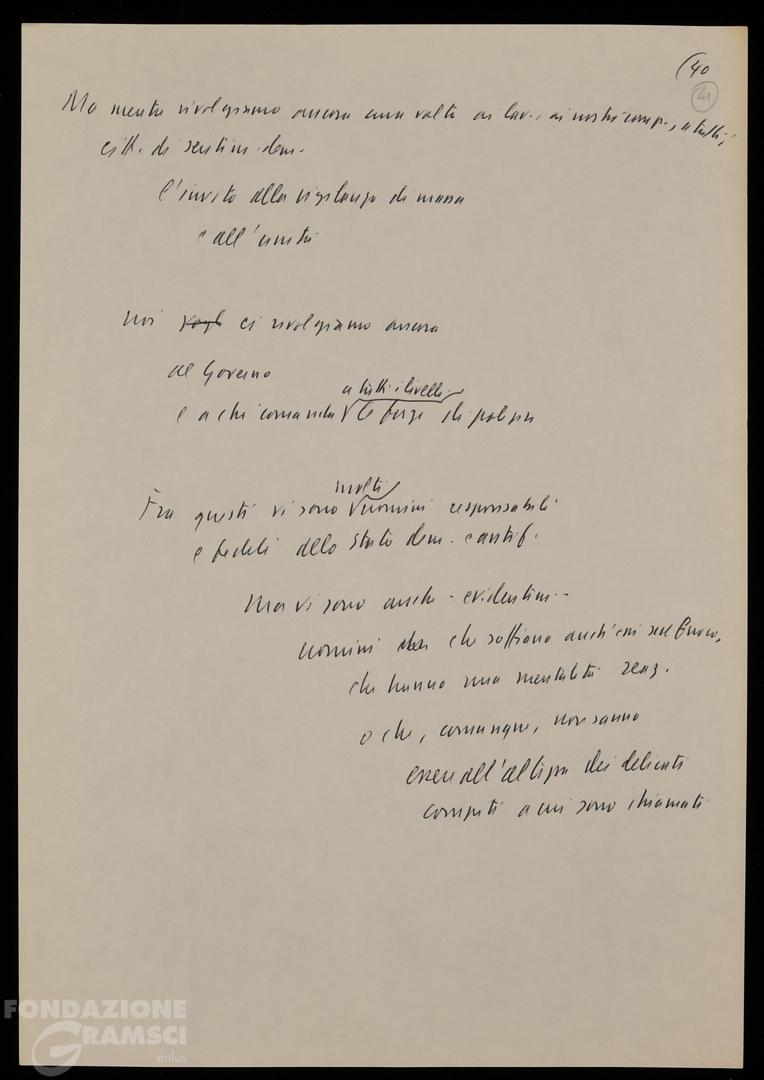 (40
21
Ma mentre rivolgiamo ancora una volta ai lav., ai nostri comp., a tutti i
citt. di sentim. dem.
l'invito alla vigilanza di massa
e all'unità
noi vogl ci rivolgiamo ancora
al Governo
a tutti i livelli
e a chi comanda le forze di polizia
molti
Fra questi vi sono uomini responsabili
e fedeli allo Stato dem. e antif.
Ma vi sono anche - evidentem. -
uomini che soffiano anch'essi sul fuoco,
che hanno una mentalità reaz.
o che, comunque, non sanno
essere all'altezza dei delicati
compiti a cui sono chiamati
FONDAZIONE
GRAMSCI
onlus